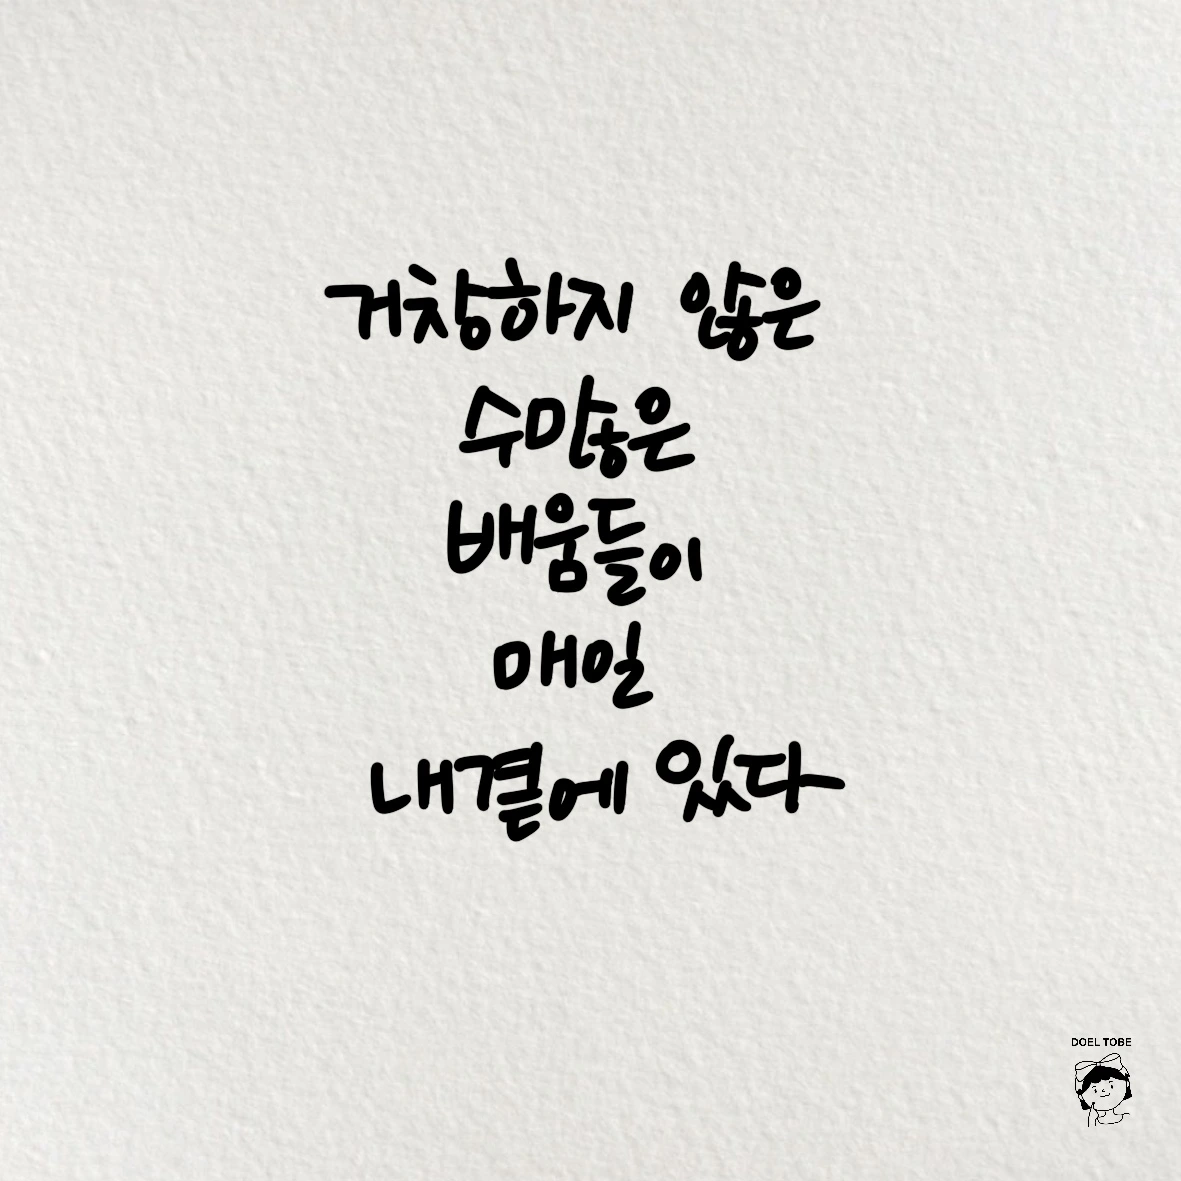 거창하지 않은
수많은
배움들이
매일
내곁에 있다
DOEL TOBE